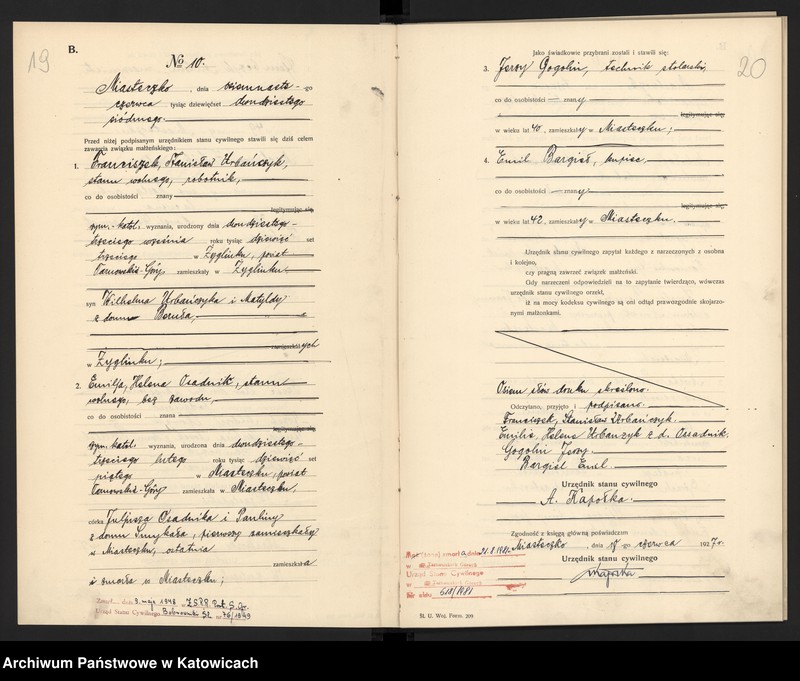 19
B.
No 10.
Miasteczko, dnia siemnaste -go
czerwca tysiąc dziewięćset dwudziestego
siódmego
Przed niżej podpisanym urzędnikiem stanu cywilnego stawili się dziś celem
zawarcia związku małżeńskiego:
1. Franciszek, Stanisław Urbańczyk,
stanu wolnego, robotnik,
co do osobistości znany
legitymując się
rzym.-katol. wyznania, urodzony dnia dwudziestego-
trzeciego września roku tysiąc dziewięć set
trzeciego w Żyglinku, powiat
Tarnowskie-Góry zamieszkały w Żyglinku
syn Wilhelma Urbańczyka i Matyldy
z domu
zamieszkałych
w Żyglinku;
2. Emilja, Helena Osadnik, stanu
wolnego, bez zawodu,
co do osobistości znana
legitymując się
rzym. katol. wyznania, urodzona dnia dwudziestego-
trzeciego lutego roku tysiąc dziewięć set
piątego w Miasteczku, powiat
Tarnowskie-Góry zamieszkała w Miasteczku,
córka Juljusza Osadnika i Pauliny
z domu pierwszy zamieszkały
w Miasteczku, ostatnia
zamieszkała
i zmarła w Miasteczku;
Zmarł dnia 9. maja 1948 w ZSRR
Urząd Stanu Cywilnego Bobrowniki Śl. nr 76/1949
20
Jako świadkowie przybrani zostali i stawili się:
3. Jerzy Gogolin, technik stolarski,
co do osobistości znany
legitymując się
w wieku lat 40, zamieszkały w Miasteczku;
4. Emil Bargieł, kupiec.
co do osobistości znany
legitymując się
w wieku lat 42, zamieszkały w Miasteczku.
Urzędnik stanu cywilnego zapytał każdego z narzeczonych z osobna
i kolejno,
czy pragną zawrzeć związek małżeński.
Gdy narzeczeni odpowiedzieli na to zapytanie twierdząco, wówczas
urzędnik stanu cywilnego orzekł,
iż na mocy kodeksu cywilnego są oni odtąd prawozgodnie skojarzo-
nymi małżonkami.
Osiem słów druku skreślono.
Odczytano, przyjęto i podpisano
Franciszek, Stanisław Urbańczyk.
Emilie Helene Urbanczyk z d. Osadnik.
Gogolin Jerzy.
Bargiel Emil
Urzędnik stanu cywilnego
A. Kapołka.
Zgodność z księgą główną poświadczam
Miasteczko, dnia 17-go czerwca 1927 r.
Urzędnik stanu cywilnego
zmarła dnia 21.8.1981
w
Urząd Stanu Cywilnego
w
Nr aktu 618/1981
Śl. U. Woj. Form. 209
Archiwum Państwowe w Katowicach